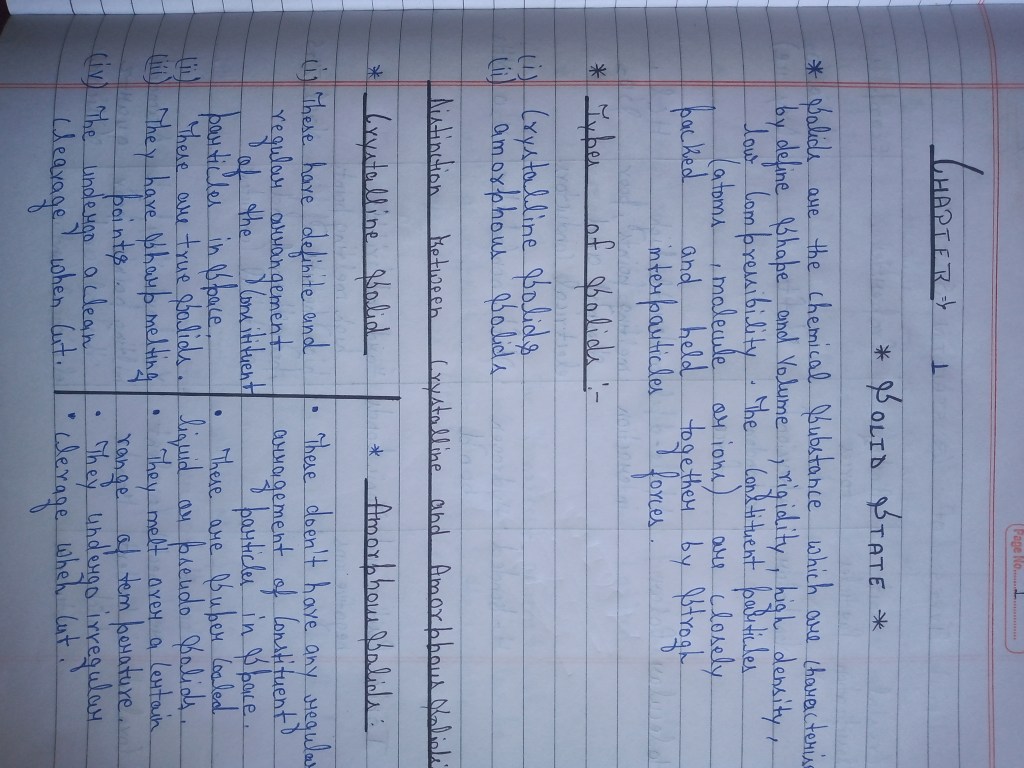 Page No. 1
CHAPTER → 1
* SOLID STATE *
* Solids are the chemical Substance which are characteris
by define Shape and Volume, rigidity, high density,
low Compressibility. The Constituent particles
(atoms, molecule or ions) are closely
packed and held together by Strogh
interparticles forces.
* Types of Solids :-
(i) Crystalline Solids
(ii) amorphous Solids
Distinition Between Crystalline and Amorphous Solids
* Crystalline Solid
(i) These have definite and
regular arrangement
of the Constituent
particles in Space.
(ii) These are true Solids.
(iii) They have Sharp melting
points
(iv) The undergo a clean
Cleavage when Cut.
* Amorphous Solids:
• These don't have any regular
arrangement of Constituent
particles in Space.
• These are Super Cooled
liquid or pseudo Solids.
• They melt over a Certain
range of temperature.
• They undergo irregular
• Clevage when Cut.